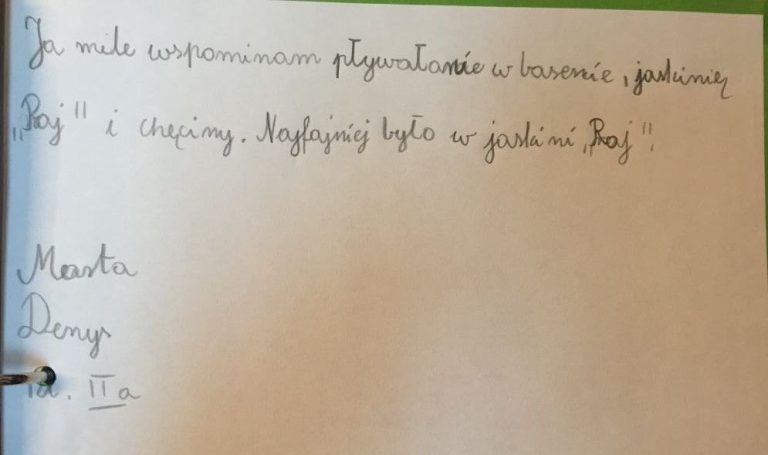 Ja mile wspominam pływałanie w basenie, jaskinię
„Raj" i chęciny. Najfajniej było w jaskini „Raj".
Marta
Denys
kl. IIa